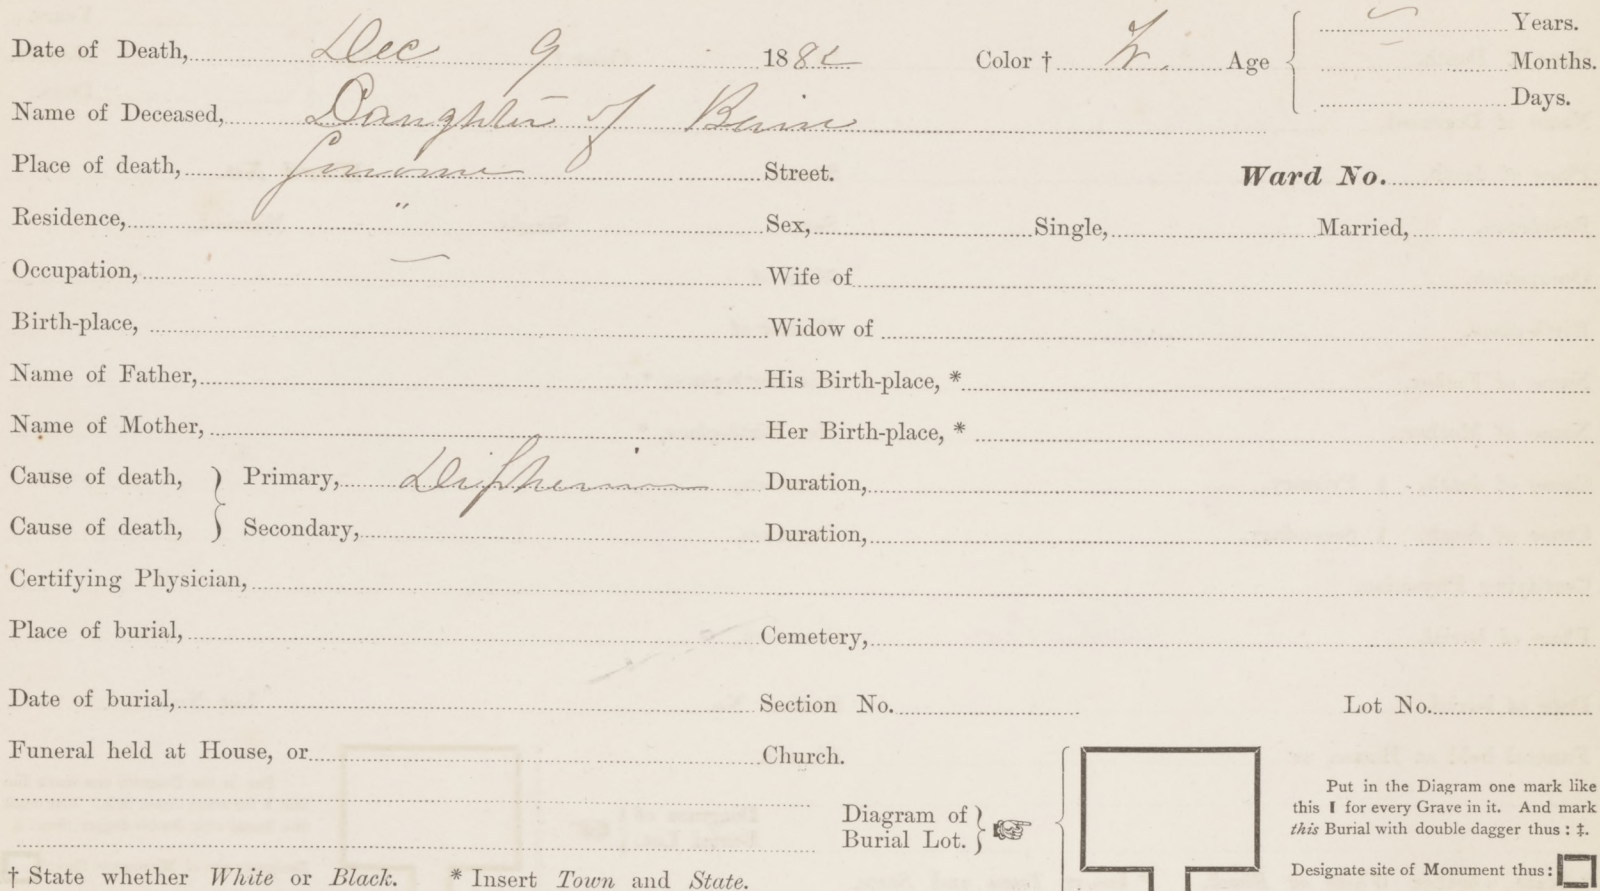 Date of Death, Dec 9 1882 Color † W. Age Years.
Months.
Days.
Name of Deceased, Daughter of
Place of death, Street. Ward No.
Residence, " Sex, Single, Married,
Occupation, — Wife of
Birth-place, Widow of
Name of Father, His Birth-place, *
Name of Mother, Her Birth-place, *
Cause of death, Primary, Duration,
Cause of death, Secondary, Duration,
Certifying Physician,
Place of burial, Cemetery,
Date of burial, Section No. Lot No.
Funeral held at House, or Church.
Diagram of
Burial Lot.
Put in the Diagram one mark like
this I for every Grave in it. And mark
this Burial with double dagger thus : ‡.
Designate site of Monument thus :
† State whether White or Black. * Insert Town and State.